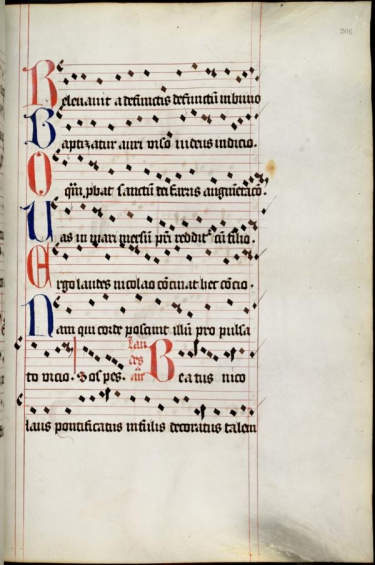 206
Releuauit a defunctis defunctū in biuio
Baptizatur auri viso iudeus indicio.
O q̄m ꝓbat sanctū dei farris augmētacō
Uas in mari mersū pr̄i redditᵉ cū filio.
Ergo laudes nicolao cōcinat hec cōcio.
Nam qui corde poscunt illū pro pulsa
to vicio. Sospes. Beatus nico
laus pontificatus infulis decoratus talem